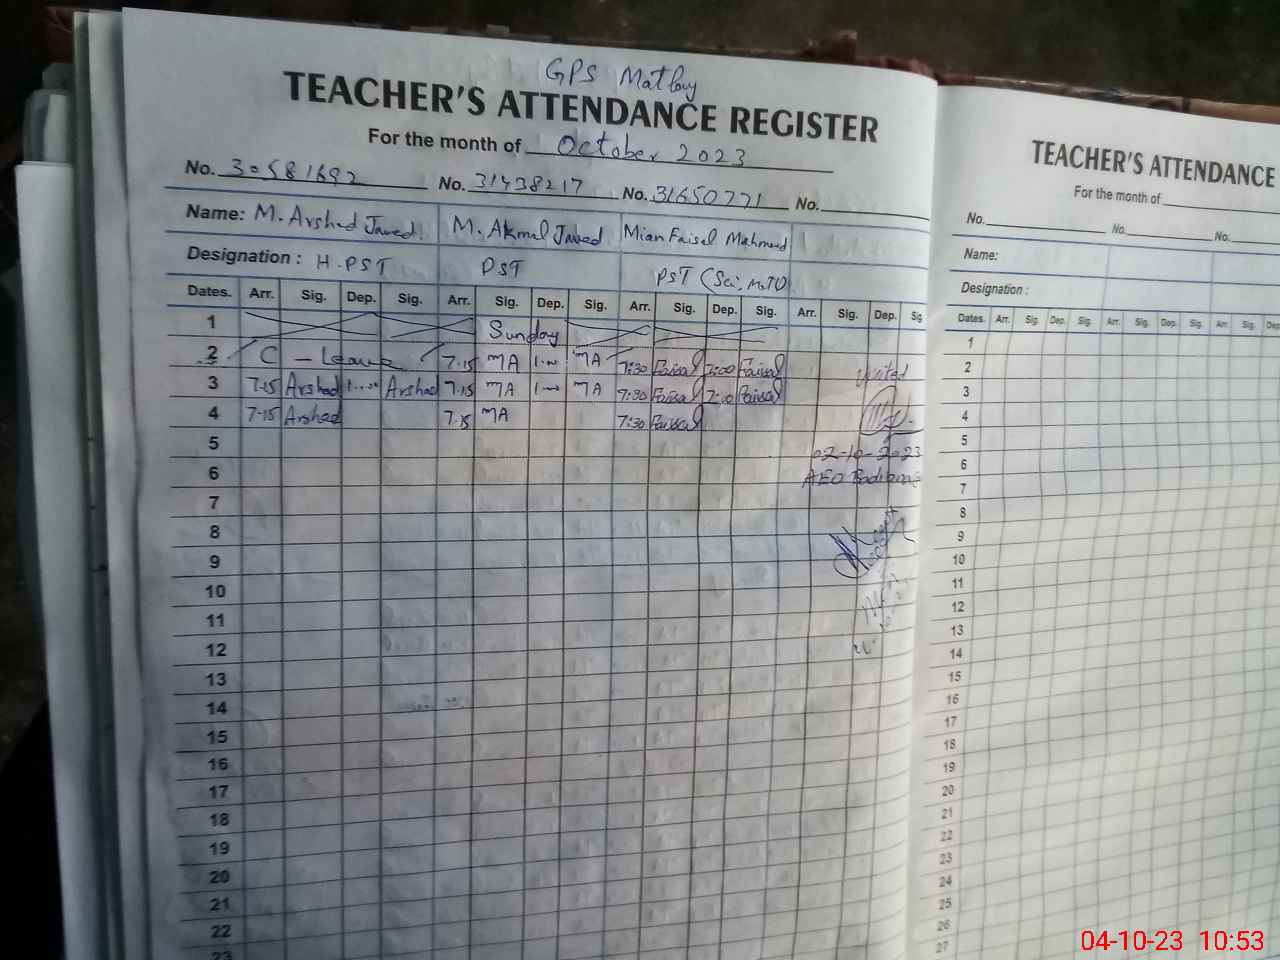 GPS Matloy
TEACHER'S ATTENDANCE REGISTER
For the month of October 2023
No. 30581692 No. 31438217 No. 31650771 No.
Name: M. Arshad Javed M. Akmal Javed Mian Faisal Mahmood
Designation: H.PST PST PST (Sci, Math)
Dates. Arr. Sig. Dep. Sig. Arr. Sig. Dep. Sig. Arr. Sig. Dep. Sig. Arr. Sig. Dep. Sig
1 Sunday
2 C - Leave 7.15 MA 1.00 MA 7:30 Faisal 1:00 Faisal
visited
3 7.15 Arshad 1.00 Arshad 7.15 MA 1.00 MA 7:30 Faisal 1:00 Faisal
4 7.15 Arshad 7.15 MA 7:30 Faisal
5
02-10-2023
6
AEO
7
8
9
10
11
12
13
14
15
16
17
18
19
20
21
22
23
TEACHER'S ATTENDANCE
For the month of
No. No. No.
Name:
Designation:
Dates. Arr. Sig. Dep. Sig. Arr. Sig. Dep. Sig. Arr. Sig. Dep.
1
2
3
4
5
6
7
8
9
10
11
12
13
14
15
16
17
18
19
20
21
22
23
24
25
26
27
04-10-23 10:53